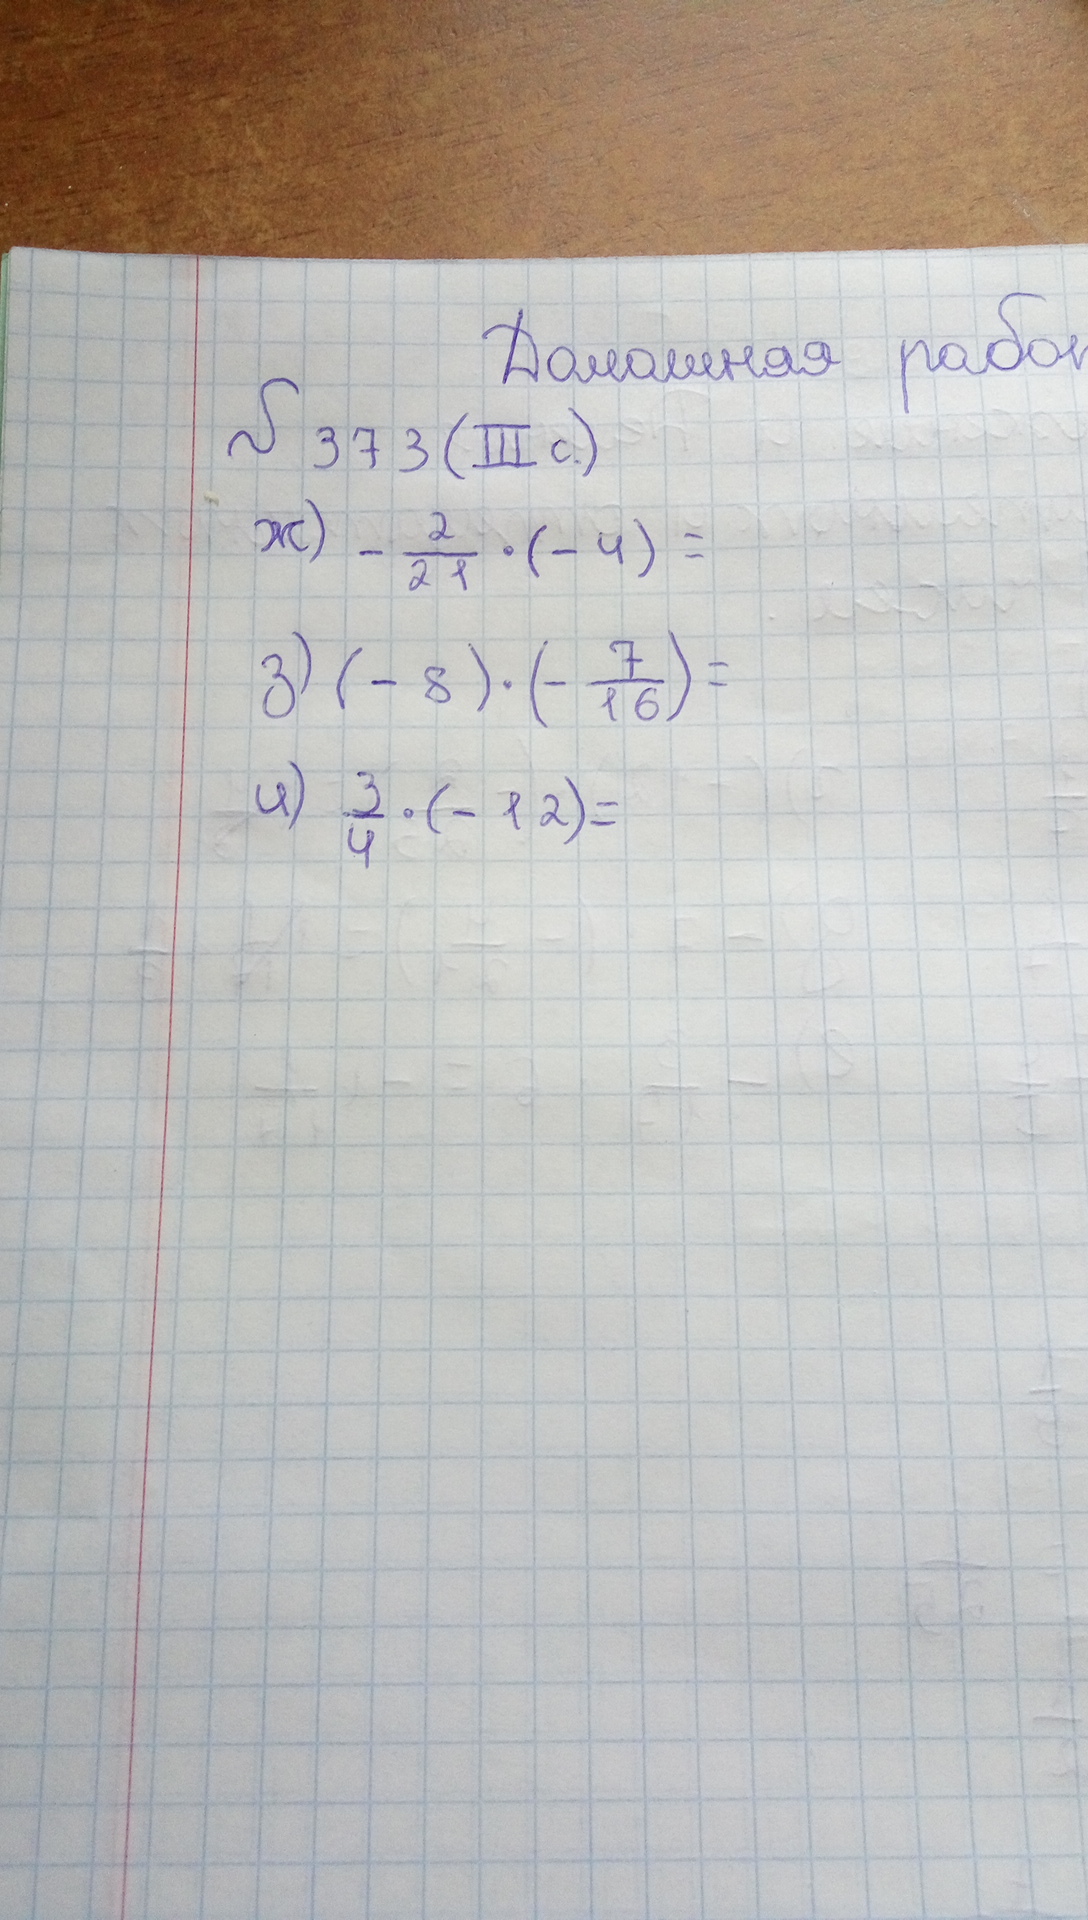 Домашняя рабо
№ 373 (III с.)
ж) - 2/21 · (- 4) =
з) (- 8) · (- 7/16) =
и) 3/4 · (- 12) =